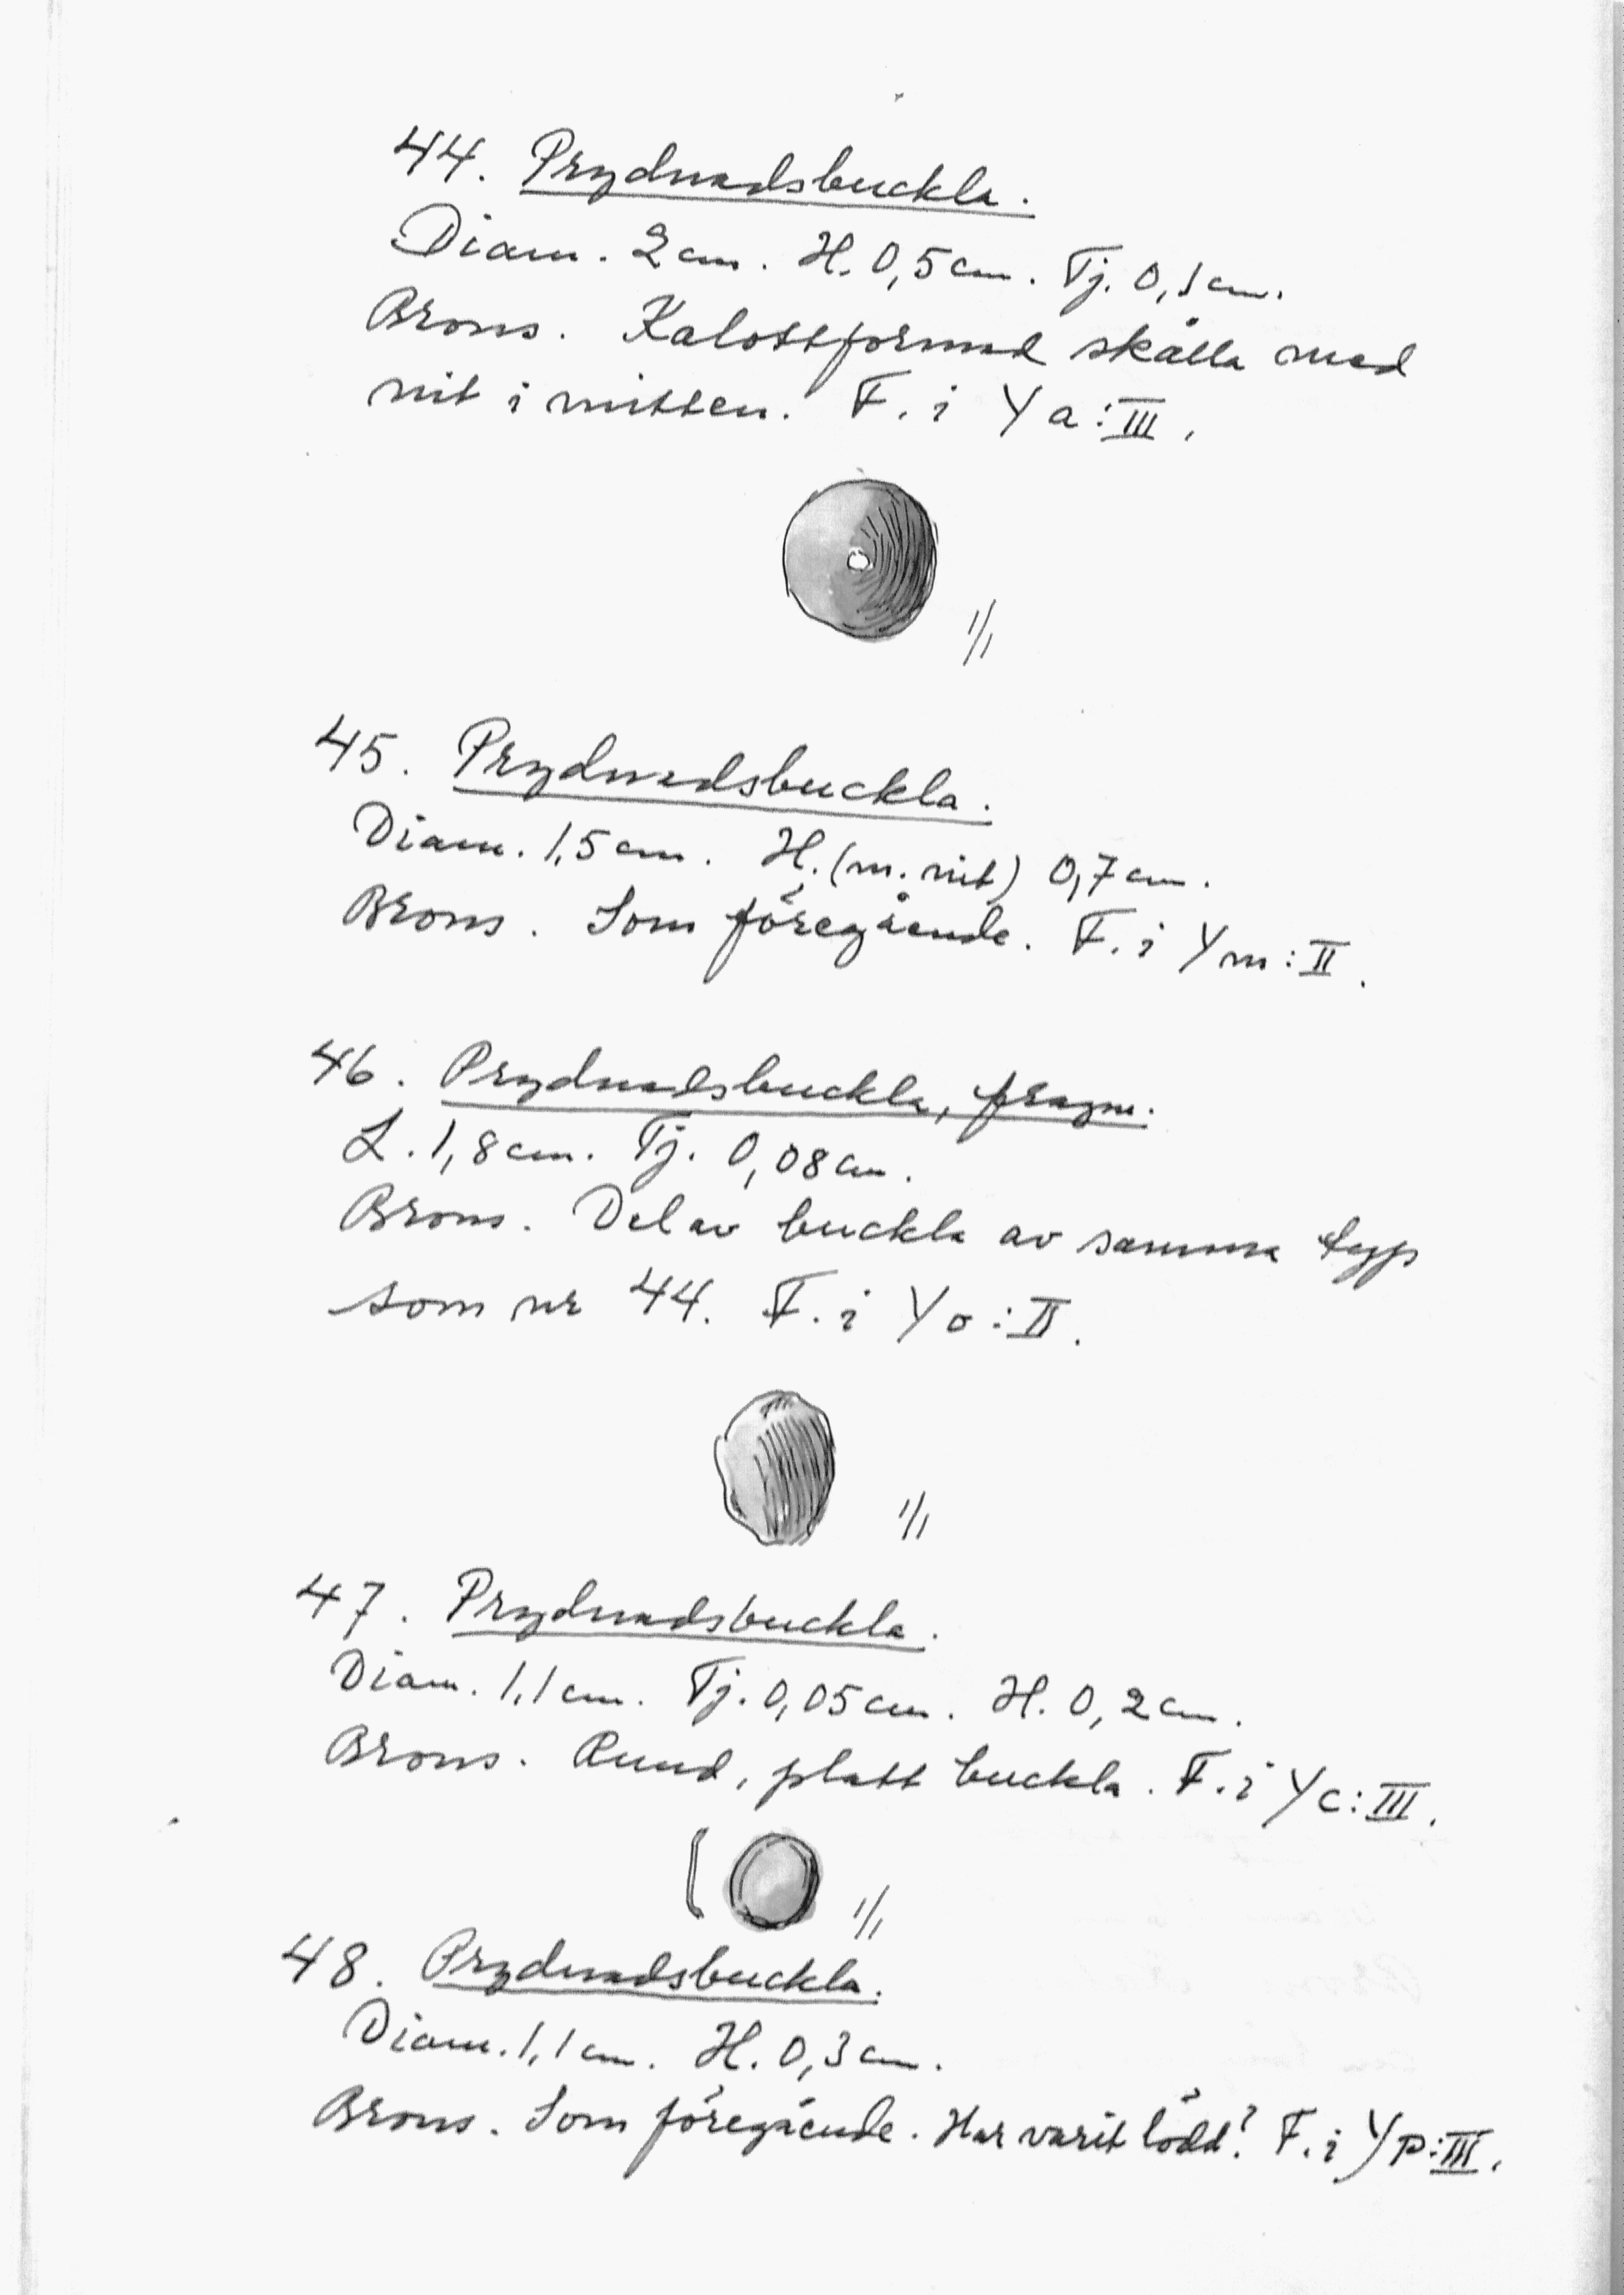 44. Prydnadsbuckla.
Diam. 2 cm. H. 0,5 cm. Tj. 0,1 cm.
Brons. Kalottformad skålla med
nit i mitten. F. i Ya:III.
1/1
45. Prydnadsbuckla.
Diam. 1,5 cm. H. (m. nit) 0,7 cm.
Brons. Som föregående. F. i Ym:II.
46. Prydnadsbuckla, fragm.
L. 1,8 cm. Tj. 0,08 cm.
Brons. Del av buckla av samma typ
som nr 44. F. i Yo:II.
1/1
47. Prydnadsbuckla.
Diam. 1,1 cm. Tj. 0,05 cm. H. 0,2 cm.
Brons. Rund, platt buckla. F. i Yc:III.
1/1
48. Prydnadsbuckla.
Diam. 1,1 cm. H. 0,3 cm.
Brons. Som föregående. Har varit lödd? F. i Yp:III.